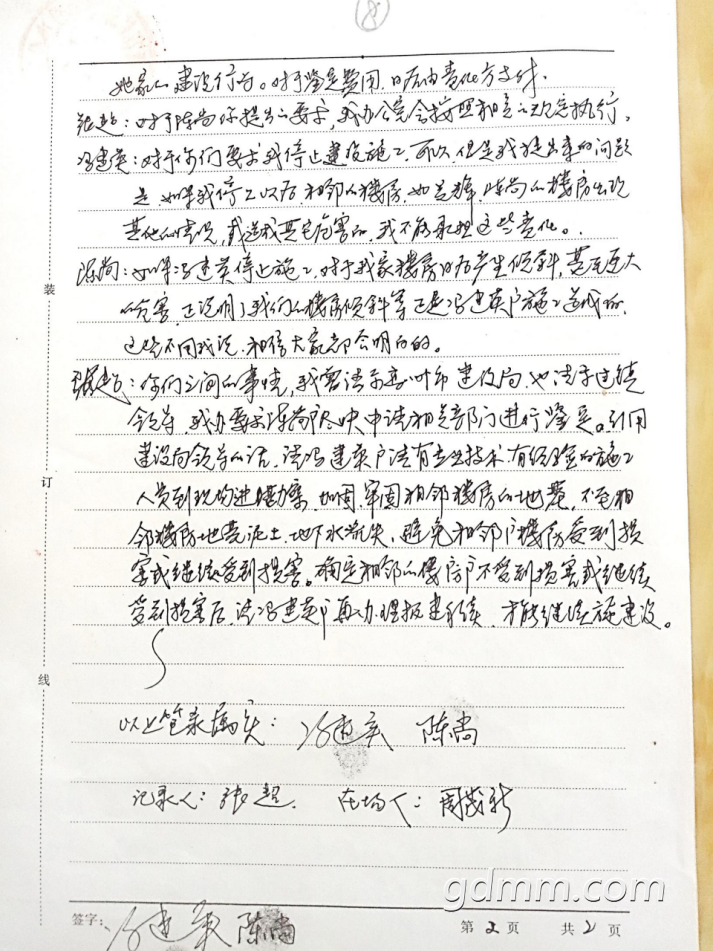 8
她家的建设行为。对于鉴定费用，日后由责任方支付。
张超：对于陈尚你提出的要求，我办公室会按照相关的规定执行。
冯建英：对于你们要求我停止建设施工，可以，但是我提出来的问题
是如果我停工以后，相邻的楼房，如 陈尚的楼房出现
其他的情况，或造成其它危害的，我不能承担这些责任。
陈尚：如果冯建英停止施工，对于我家楼房日后产生倾斜，甚至更大
的危害，正说明了我们的楼房倾斜等正是冯建英户施工造成的，
这些不同我说，相信大家都会明白的。
张超：你们之间的事情，我曾请示 市建设局，也请示过镇
领导，我办要求陈尚尽快申请相关部门进行鉴定。引用
建设局领导的话，请冯建英户请有专业技术、有经验的施工
人员到现场进行勘察，加固、牢固相邻楼房的地基，不至相
邻楼房地基泥土、地下水流失，避免相邻户楼房受到损
害或继续受到损害。确定相邻的楼房户不受到损害或继续
受到损害后，请冯建英户再办理报建手续，才能继续施建设。
以上笔录属实：冯建英 陈尚
记录人：张超。 在场人：周茂新
签字：冯建英 陈尚 第2页 共2页
装
订
线
gdmm.com